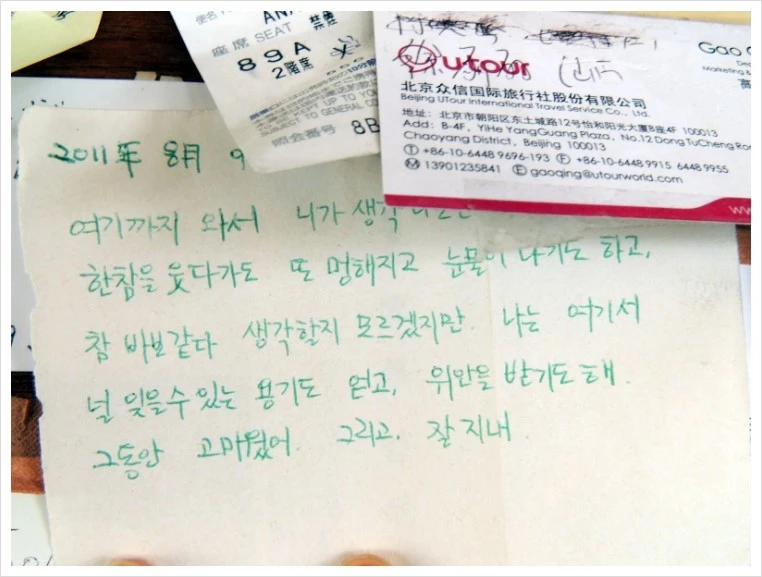 座席 SEAT
89A
2階席
8B
utour
北京众信国际旅行社股份有限公司
Beijing UTour International Travel Service Co., Ltd.
地址: 北京市朝阳区东土城路12号怡和阳光大厦B座4F 100013
Add: B-4F, YiHe YangGuang Plaza, No.12 DongTuCheng
Chaoyang District, Beijing 100013
T +86-10-6448 9696-193 F +86-10-6448 9915 6448 9955
M 13901235841 E gaoqing@utourworld.com
2011年 8月 9
여기까지 와서 니가 생각
한참을 웃다가도 또 멍해지고 눈물이 나기도 하고,
참 바보같다 생각할지 모르겠지만 나는 여기서
널 잊을수있는 용기도 얻고, 위안을 받기도 해.
그동안 고마웠어. 그리고. 잘 지내.